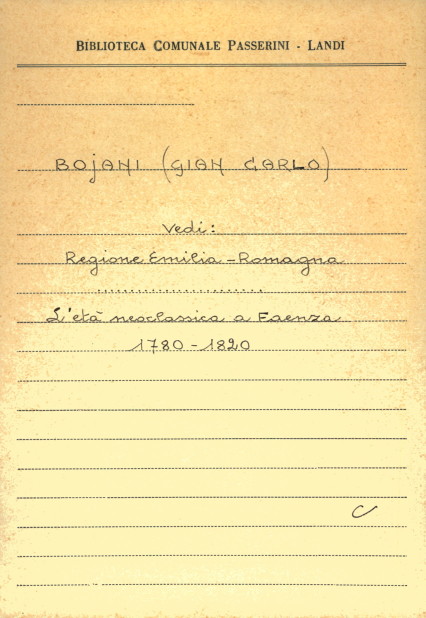 BIBLIOTECA COMUNALE PASSERINI - LANDI
BOJANI (GIAN CARLO)
Vedi:
Regione Emilia-Romagna
........................
L'età neoclassica a Faenza
1780-1820
C